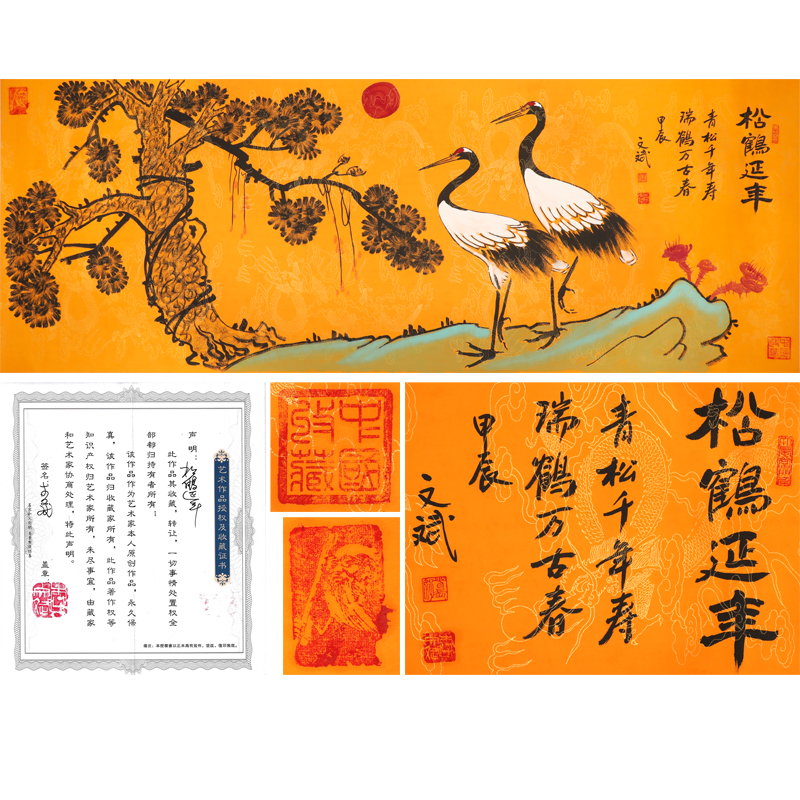 松鶴延年
青松千年寿
瑞鶴万古春
甲辰
文斌
艺术作品授权及收藏证书
声明:松鹤延年
此作品其收藏,转让,一切事情处置权全
部都归持有者所有!
该作品作为艺术家本人原创作品,永久保
真,该作品归收藏家所有,此作品著作权等
知识产权归艺术家所有,未尽事宜,由藏家
和艺术家协商处理,特此声明。
签名: 盖章:
中國收藏
松鶴延年
青松千年寿
瑞鶴万古春
甲辰
文斌